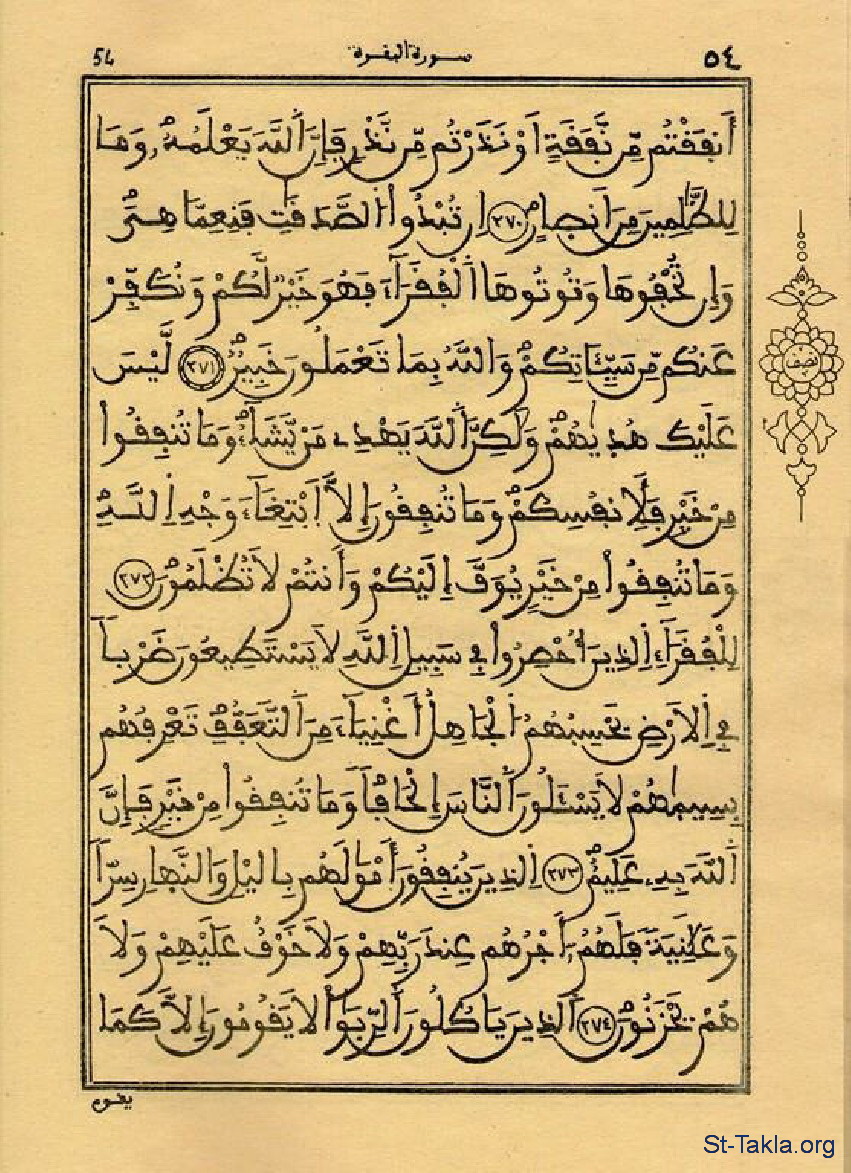 54 سورة البقرة ٥٤
أَنفَقْتُم مِّن نَّفَقَةٍ أَوْ نَذَرْتُم مِّن نَّذْرٍ فَإِنَّ اَللَّهَ يَعْلَمُهُۥ وَمَا
لِلظَّٰلِمِينَ مِنَ اَنصٰارٍ ٢٧٠ اِن تُبْدُواْ اُلصَّدَقَٰتِ فَنِعِمَّا هِىَ
وَإِن تُخْفُوهَا وَتُوتُوهَا اَلْفُقَرَآءَ فَهُوَ خَيْرٌ لَّكُمْ وَنُكَفِّرْ
عَنكُم مِّن سَيِّـَٔاتِكُمْ وَاللَّهُ بِمَا تَعْمَلُونَ خَبِيرٌ ٢٧١ لَّيْسَ
عَلَيْكَ هُدٜيٰهُمْ وَلَٰكِنَّ اَللَّهَ يَهْدِے مَنْ يَّشَآءُ وَمَا تُنفِقُواْ
مِنْ خَيْرٍ فَلِأَنفُسِكُمْ وَمَا تُنفِقُونَ إِلاَّ اَبْتِغَآءَ وَجْهِ اِللَّهِ
وَمَا تُنفِقُواْ مِنْ خَيْرٍ يُوَفَّ إِلَيْكُمْ وَأَنتُمْ لاَ تُظْلَمُونَ ٢٧٢
لِلْفُقَرَآءِ اِلذِينَ أُحْصِرُواْ فِے سَبِيلِ اِللَّهِ لاَ يَسْتَطِيعُونَ ضَرْباً
فِے اِلاَرْضِ يَحْسِبُهُمُ اُلْجَاهِلُ أَغْنِيَآءَ مِنَ اَلتَّعَفُّفِ تَعْرِفُهُم
بِسِيمٜيٰهُمْ لاَ يَسْـَٔلُونَ اَلنَّاسَ إِلْحَافاً وَمَا تُنفِقُواْ مِنْ خَيْرٍ فَإِنَّ
اَللَّهَ بِهِۦ عَلِيمٌ ٢٧٣ اِلذِينَ يُنفِقُونَ أَمْوَٰلَهُم بِاليْلِ وَالنَّهارِ سِرّاً
وَعَلَٰنِيَةً فَلَهُمُۥٓ أَجْرُهُمْ عِندَ رَبِّهِمْ وَلاَ خَوْفٌ عَلَيْهِمْ وَلاَ
هُمْ يَحْزَنُونَ ٢٧٤ اَلذِينَ يَاكُلُونَ اَلرِّبَوٰاْ لاَ يَقُومُونَ إِلاَّ كَمَا
نصف
يقوم
St-Takla.org